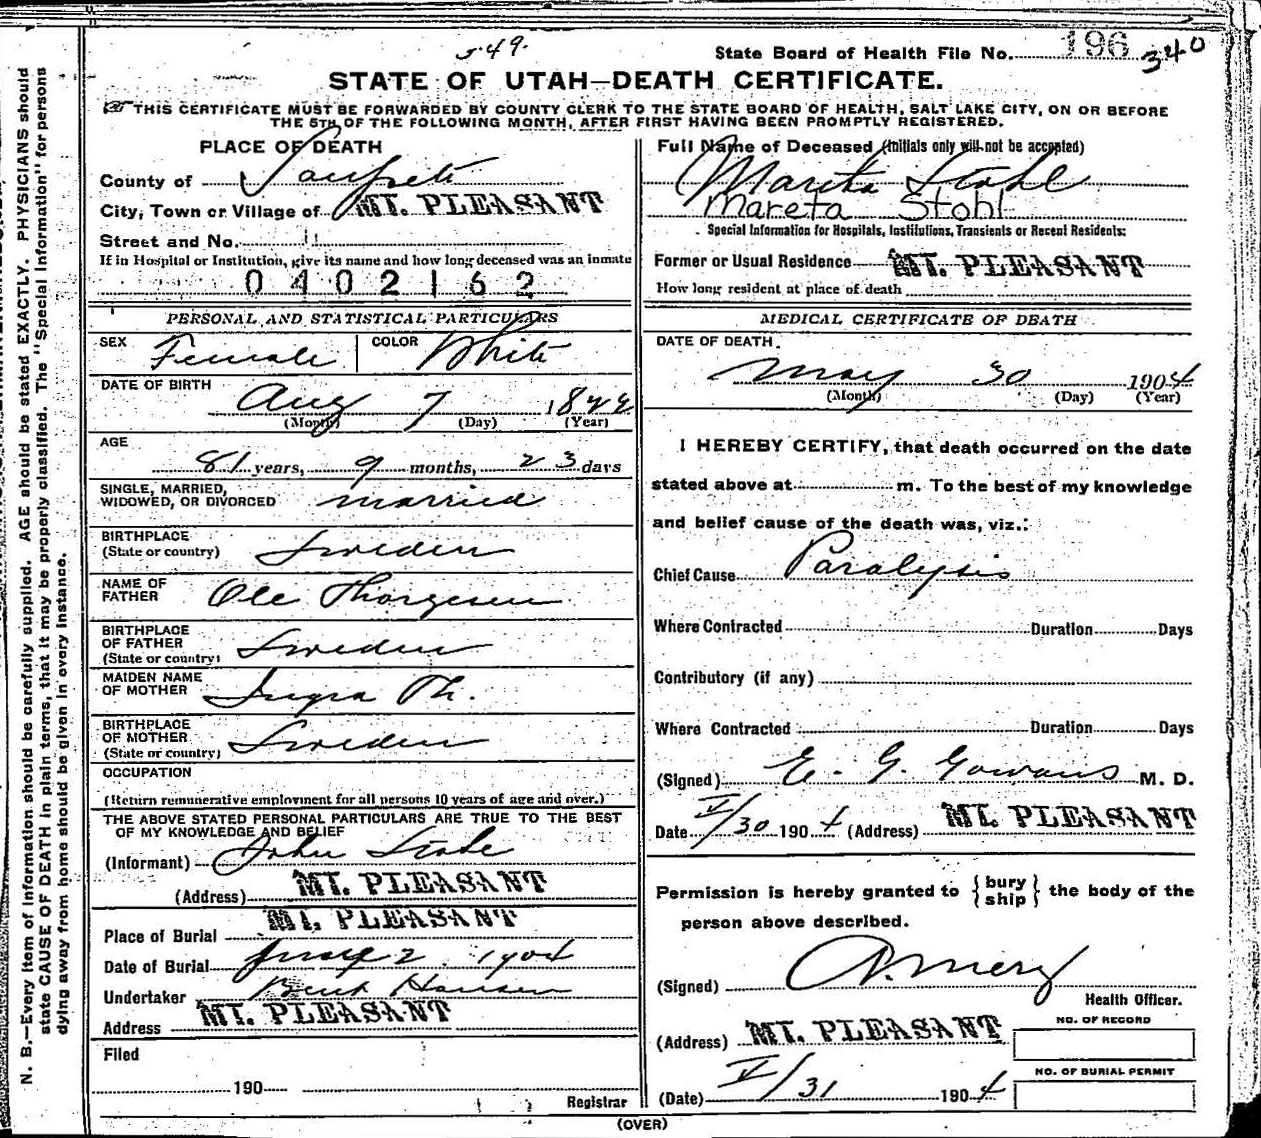 549.
State Board of Health File No. 196 340
STATE OF UTAH—DEATH CERTIFICATE.
THIS CERTIFICATE MUST BE FORWARDED BY COUNTY CLERK TO THE STATE BOARD OF HEALTH, SALT LAKE CITY, ON OR BEFORE
THE 5TH OF THE FOLLOWING MONTH, AFTER FIRST HAVING BEEN PROMPTLY REGISTERED.
PLACE OF DEATH
County of Sanpete
City, Town or Village of MT. PLEASANT
Street and No.
If in Hospital or Institution, give its name and how long deceased was an inmate
0402162
PERSONAL AND STATISTICAL PARTICULARS
SEX Female COLOR White
DATE OF BIRTH
Aug 7 1822
(Month) (Day) (Year)
AGE
81 years, 9 months, 23 days
SINGLE, MARRIED,
WIDOWED, OR DIVORCED married
BIRTHPLACE
(State or country) Sweden
NAME OF
FATHER Ole Thorgesen
BIRTHPLACE
OF FATHER
(State or country) Sweden
MAIDEN NAME
OF MOTHER Ingra Th.
BIRTHPLACE
OF MOTHER
(State or country) Sweden
OCCUPATION
(Return remunerative employment for all persons 10 years of age and over.)
THE ABOVE STATED PERSONAL PARTICULARS ARE TRUE TO THE BEST
OF MY KNOWLEDGE AND BELIEF
(Informant) John Stohl
(Address) MT. PLEASANT
Place of Burial MT. PLEASANT
Date of Burial June 2 1904
Undertaker Bent Hansen
Address MT. PLEASANT
Filed
190
Registrar
Full Name of Deceased (Initials only will not be accepted)
Mareta Stohl
Mareta Stohl
Special Information for Hospitals, Institutions, Transients or Recent Residents:
Former or Usual Residence MT. PLEASANT
How long resident at place of death
MEDICAL CERTIFICATE OF DEATH
DATE OF DEATH.
May 30 1904
(Month) (Day) (Year)
I HEREBY CERTIFY, that death occurred on the date
stated above at m. To the best of my knowledge
and belief cause of the death was, viz.:
Chief Cause Paralysis
Where Contracted Duration Days
Contributory (if any)
Where Contracted Duration Days
(Signed) E. G. Gowans M. D.
Date V/30 1904 (Address) MT. PLEASANT
Permission is hereby granted to {bury ship} the body of the
person above described.
(Signed) A. Merz
Health Officer.
(Address) MT. PLEASANT
NO. OF RECORD
NO. OF BURIAL PERMIT
(Date) V/31 1904
(OVER)
N. B.—Every item of information should be carefully supplied. AGE should be stated EXACTLY. PHYSICIANS should
state CAUSE OF DEATH in plain terms, that it may be properly classified. The "Special Information" for persons
dying away from home should be given in every instance.